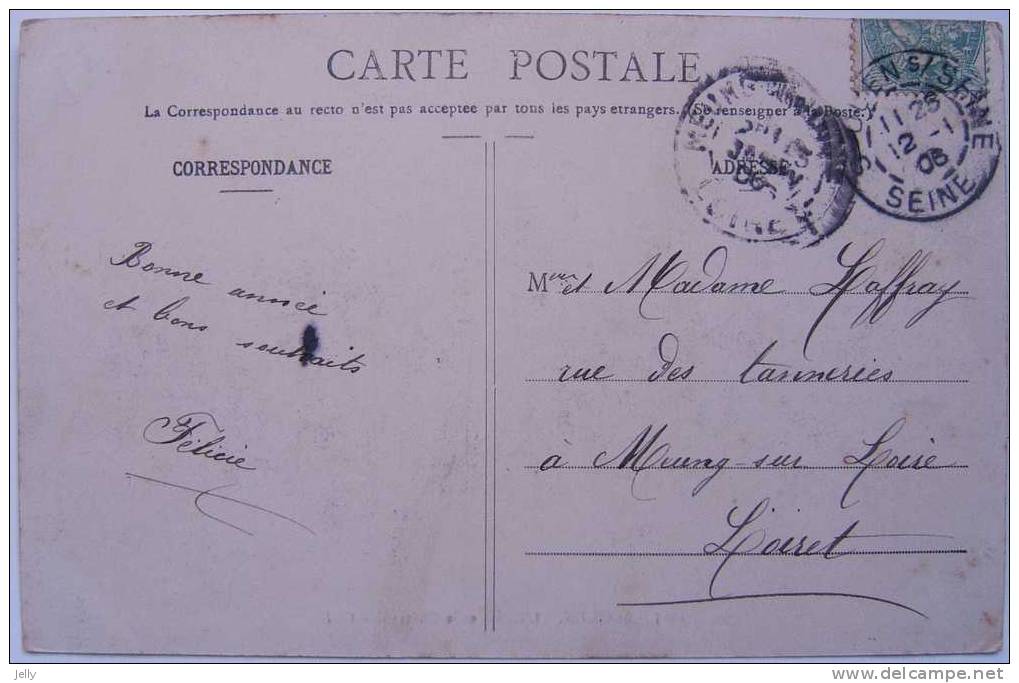 CARTE POSTALE
La Correspondance au recto n'est pas acceptée par tous les pays étrangers. (Se renseigner à la Poste.)
CORRESPONDANCE
ADRESSE
Bonne année
et bons
souhaits
Félicie
M et Madame Laffray
rue des tanneries
à Meung-sur Loire
Loiret
MEUNG
LOIRET
S/SEINE
11 25
12 -1
06
SEINE
jelly
delcampe.net